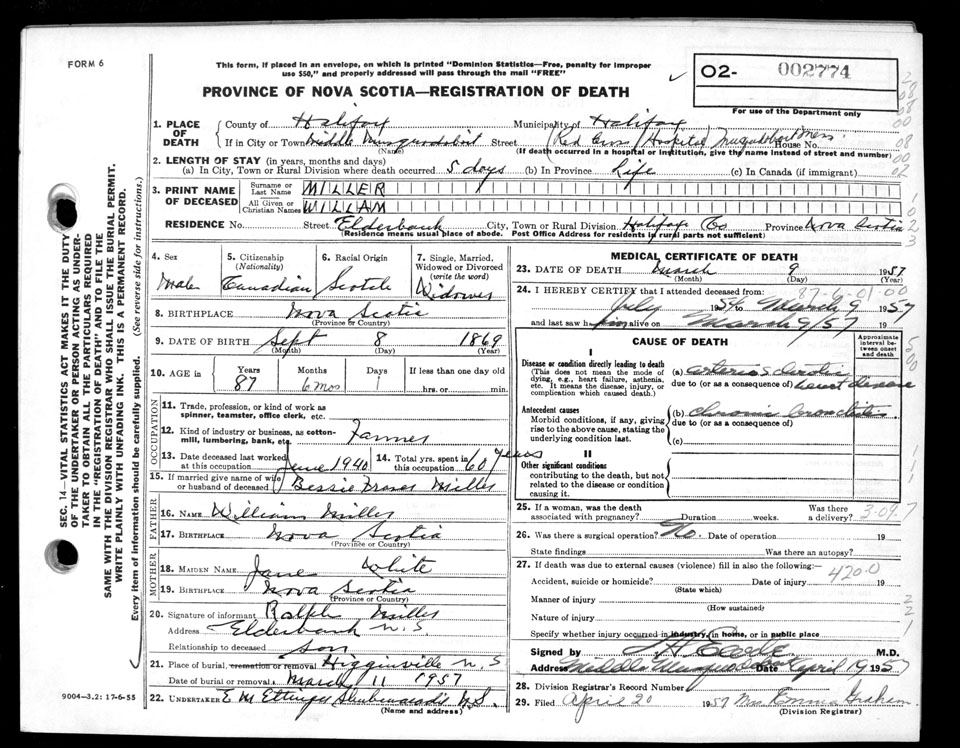 FORM 6
This form, if placed in an envelope, on which is printed "Dominion Statistics—Free, penalty for improper
use $50," and properly addressed will pass through the mail "FREE"
02- 002774
For use of the Department only
PROVINCE OF NOVA SCOTIA—REGISTRATION OF DEATH
1. PLACE OF DEATH
County of Halifax Municipality of Halifax
If in City or Town Middle Musquodoboit Street Red Cross Hospital House No.
(Name) (If death occurred in a hospital or institution, give the name instead of street and number)
2. LENGTH OF STAY (in years, months and days)
(a) In City, Town or Rural Division where death occurred 5 days (b) In Province Life (c) In Canada (if immigrant)
3. PRINT NAME OF DECEASED
Surname or Last Name MILLER
All Given or Christian Names WILLIAM
RESIDENCE No. Street Elderbank City, Town or Rural Division Halifax Co Province Nova Scotia
(Residence means usual place of abode. Post Office Address for residents in rural parts not sufficient)
4. Sex Male
5. Citizenship (Nationality) Canadian
6. Racial Origin Scotch
7. Single, Married, Widowed or Divorced (write the word) Widower
8. BIRTHPLACE Nova Scotia
(Province or Country)
9. DATE OF BIRTH Sept 8 1869
(Month) (Day) (Year)
10. AGE in Years 87 Months 6 mos Days 1 If less than one day old
hrs. or min.
OCCUPATION
11. Trade, profession, or kind of work as
spinner, teamster, office clerk, etc.
12. Kind of industry or business, as cotton-
mill, lumbering, bank, etc. Farmer
13. Date deceased last worked at this occupation June 1940
14. Total yrs. spent in this occupation 60 years
15. If married give name of wife
or husband of deceased Bessie Fraser Miller
FATHER
16. NAME William Miller
17. BIRTHPLACE Nova Scotia
(Province or Country)
MOTHER
18. MAIDEN NAME Jane White
19. BIRTHPLACE Nova Scotia
(Province or Country)
20. Signature of informant Ralph Miller
Address Elderbank N.S
Relationship to deceased Son
21. Place of burial, cremation or removal Higginsville N.S
Date of burial or removal March 11 1957
22. UNDERTAKER E M Ettinger Shubenacadie N.S.
(Name and address)
MEDICAL CERTIFICATE OF DEATH
23. DATE OF DEATH March 9 1957
(Month) (Day) (Year)
24. I HEREBY CERTIFY that I attended deceased from:
87-6-01-00
July 1956 March 9 1957
and last saw him alive on March 9/57 19
CAUSE OF DEATH
Approximate interval between onset and death
I
Disease or condition directly leading to death
(This does not mean the mode of dying, e.g., heart failure, asthenia, etc. It means the disease, injury, or complication which caused death.)
(a) arterio sclerotic
due to (or as a consequence of) heart disease
Antecedent causes
Morbid conditions, if any, giving rise to the above cause, stating the underlying condition last.
(b) chronic bronchitis
due to (or as a consequence of)
(c)
II
Other significant conditions
contributing to the death, but not related to the disease or condition causing it.
25. If a woman, was the death associated with pregnancy? Duration weeks. Was there a delivery?
3-097
26. Was there a surgical operation? No. Date of operation 19
State findings Was there an autopsy?
27. If death was due to external causes (violence) fill in also the following:—
4200
Accident, suicide or homicide? Date of injury 19
(State which)
Manner of injury
(How sustained)
Nature of injury
Specify whether injury occurred in industry, in home, or in public place
Signed by M.D.
Address Middle Musquodoboit April 1957
28. Division Registrar's Record Number
29. Filed April 20 1957 Mrs Emma Graham
(Division Registrar)
SEC. 14—VITAL STATISTICS ACT MAKES IT THE DUTY
OF THE UNDERTAKER OR PERSON ACTING AS UNDER-
TAKER TO OBTAIN ALL THE PARTICULARS REQUIRED
IN THE "REGISTRATION OF DEATH" AND TO FILE THE
SAME WITH THE DIVISION REGISTRAR WHO SHALL ISSUE THE BURIAL PERMIT.
WRITE PLAINLY WITH UNFADING INK. THIS IS A PERMANENT RECORD.
Every item of information should be carefully supplied. (See reverse side for instructions.)
9004-3.2: 17-6-55